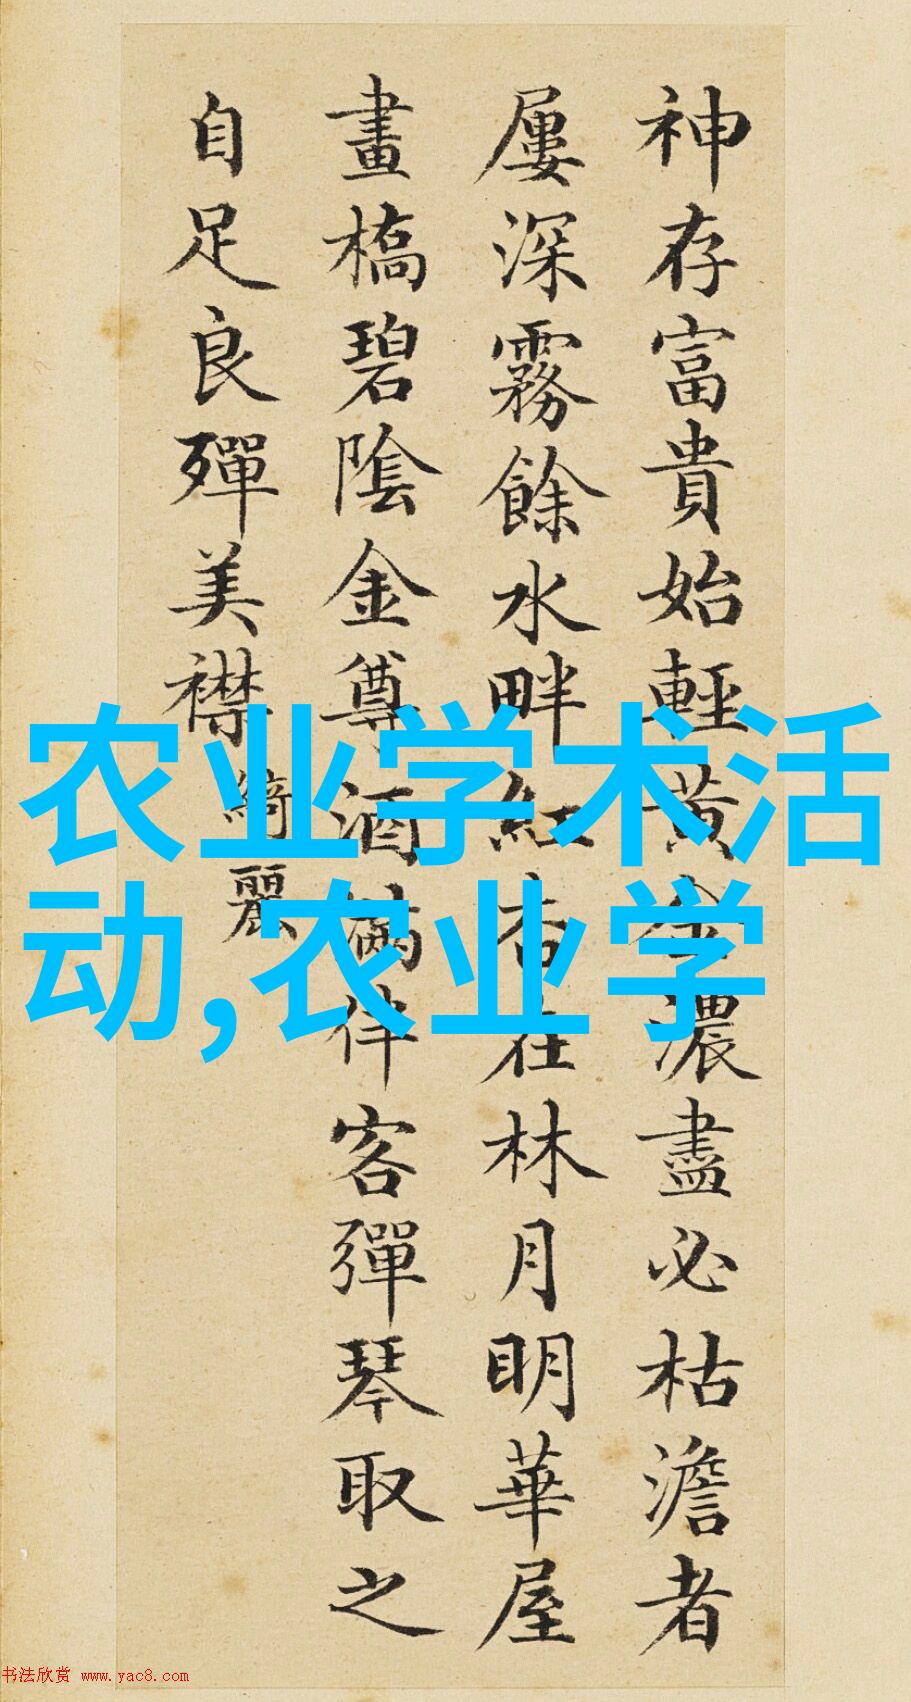 神存富貴始輕黃金濃盡必枯澹者
屢深霧餘水畔紅杏在林月明華屋
畫橋碧陰金尊酒滿伴客彈琴取之
自足良殫美襟
綺麗
农业学术活
动,农业学
书法欣赏 www.yac8.com